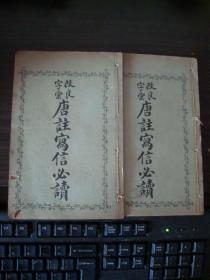 改良
字彙
唐註寫信必讀
改良
字彙
唐註寫信必讀